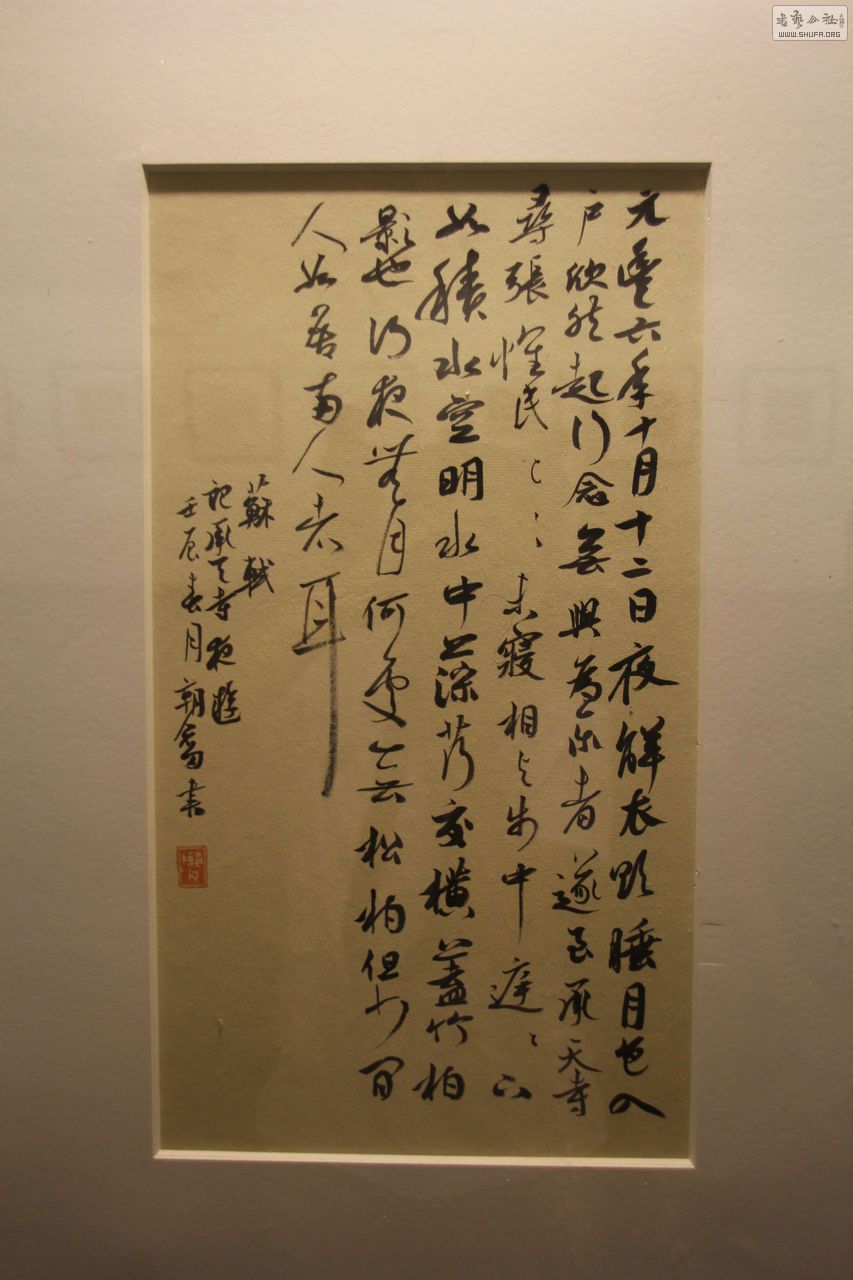 元豐六年十月十二日夜解衣欲睡月色入
戶欣然起行念無與為樂者遂至承天寺
尋張懷民〻〻未寢相與步中庭〻下
如積水空明水中藻荇交橫蓋竹柏
影也何夜無月何處無松柏但少閒
人如吾兩人者耳
蘇軾
記承天寺夜遊
壬辰春月朝書
WWW.SHUFA.ORG